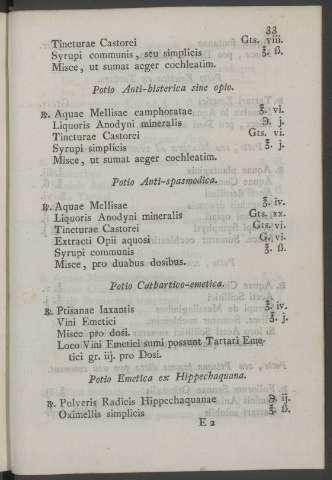 33
Tincturae Castorei Gts. viii.
Syrupi communis, seu simplicis ℥. ß.
Misce, ut sumat aeger cochleatim.
Potio Anti-histerica sine opio.
℞. Aquae Mellisae camphoratae ℥. vi.
Liquoris Anodyni mineralis ℈. j.
Tincturae Castorei Gts. vi.
Syrupi simplicis ℥. j.
Misce, ut sumat aeger cochleatim.
Potio Anti-spasmodica.
℞. Aquae Mellisae ℥. iv.
Liquoris Anodyni mineralis Gts. xx.
Tincturae Castorei Gts. vi.
Extracti Opii aquosi G. vi.
Syrupi communis ℥. ß.
Misce, pro duabus dosibus.
Potio Cathartico-emetica.
℞. Ptisanae laxantis ℥. iv.
Vini Emetici ℥. j.
Misce pro dosi.
Loco Vini Emetici sumi possunt Tartari Eme-
tici gr. iij. pro Dosi.
Potio Emetica ex Hippechaquana.
℞. Pulveris Radicis Hippechaquanae ℈. ij.
Oximellis simplicis ℥. ß.
E 2